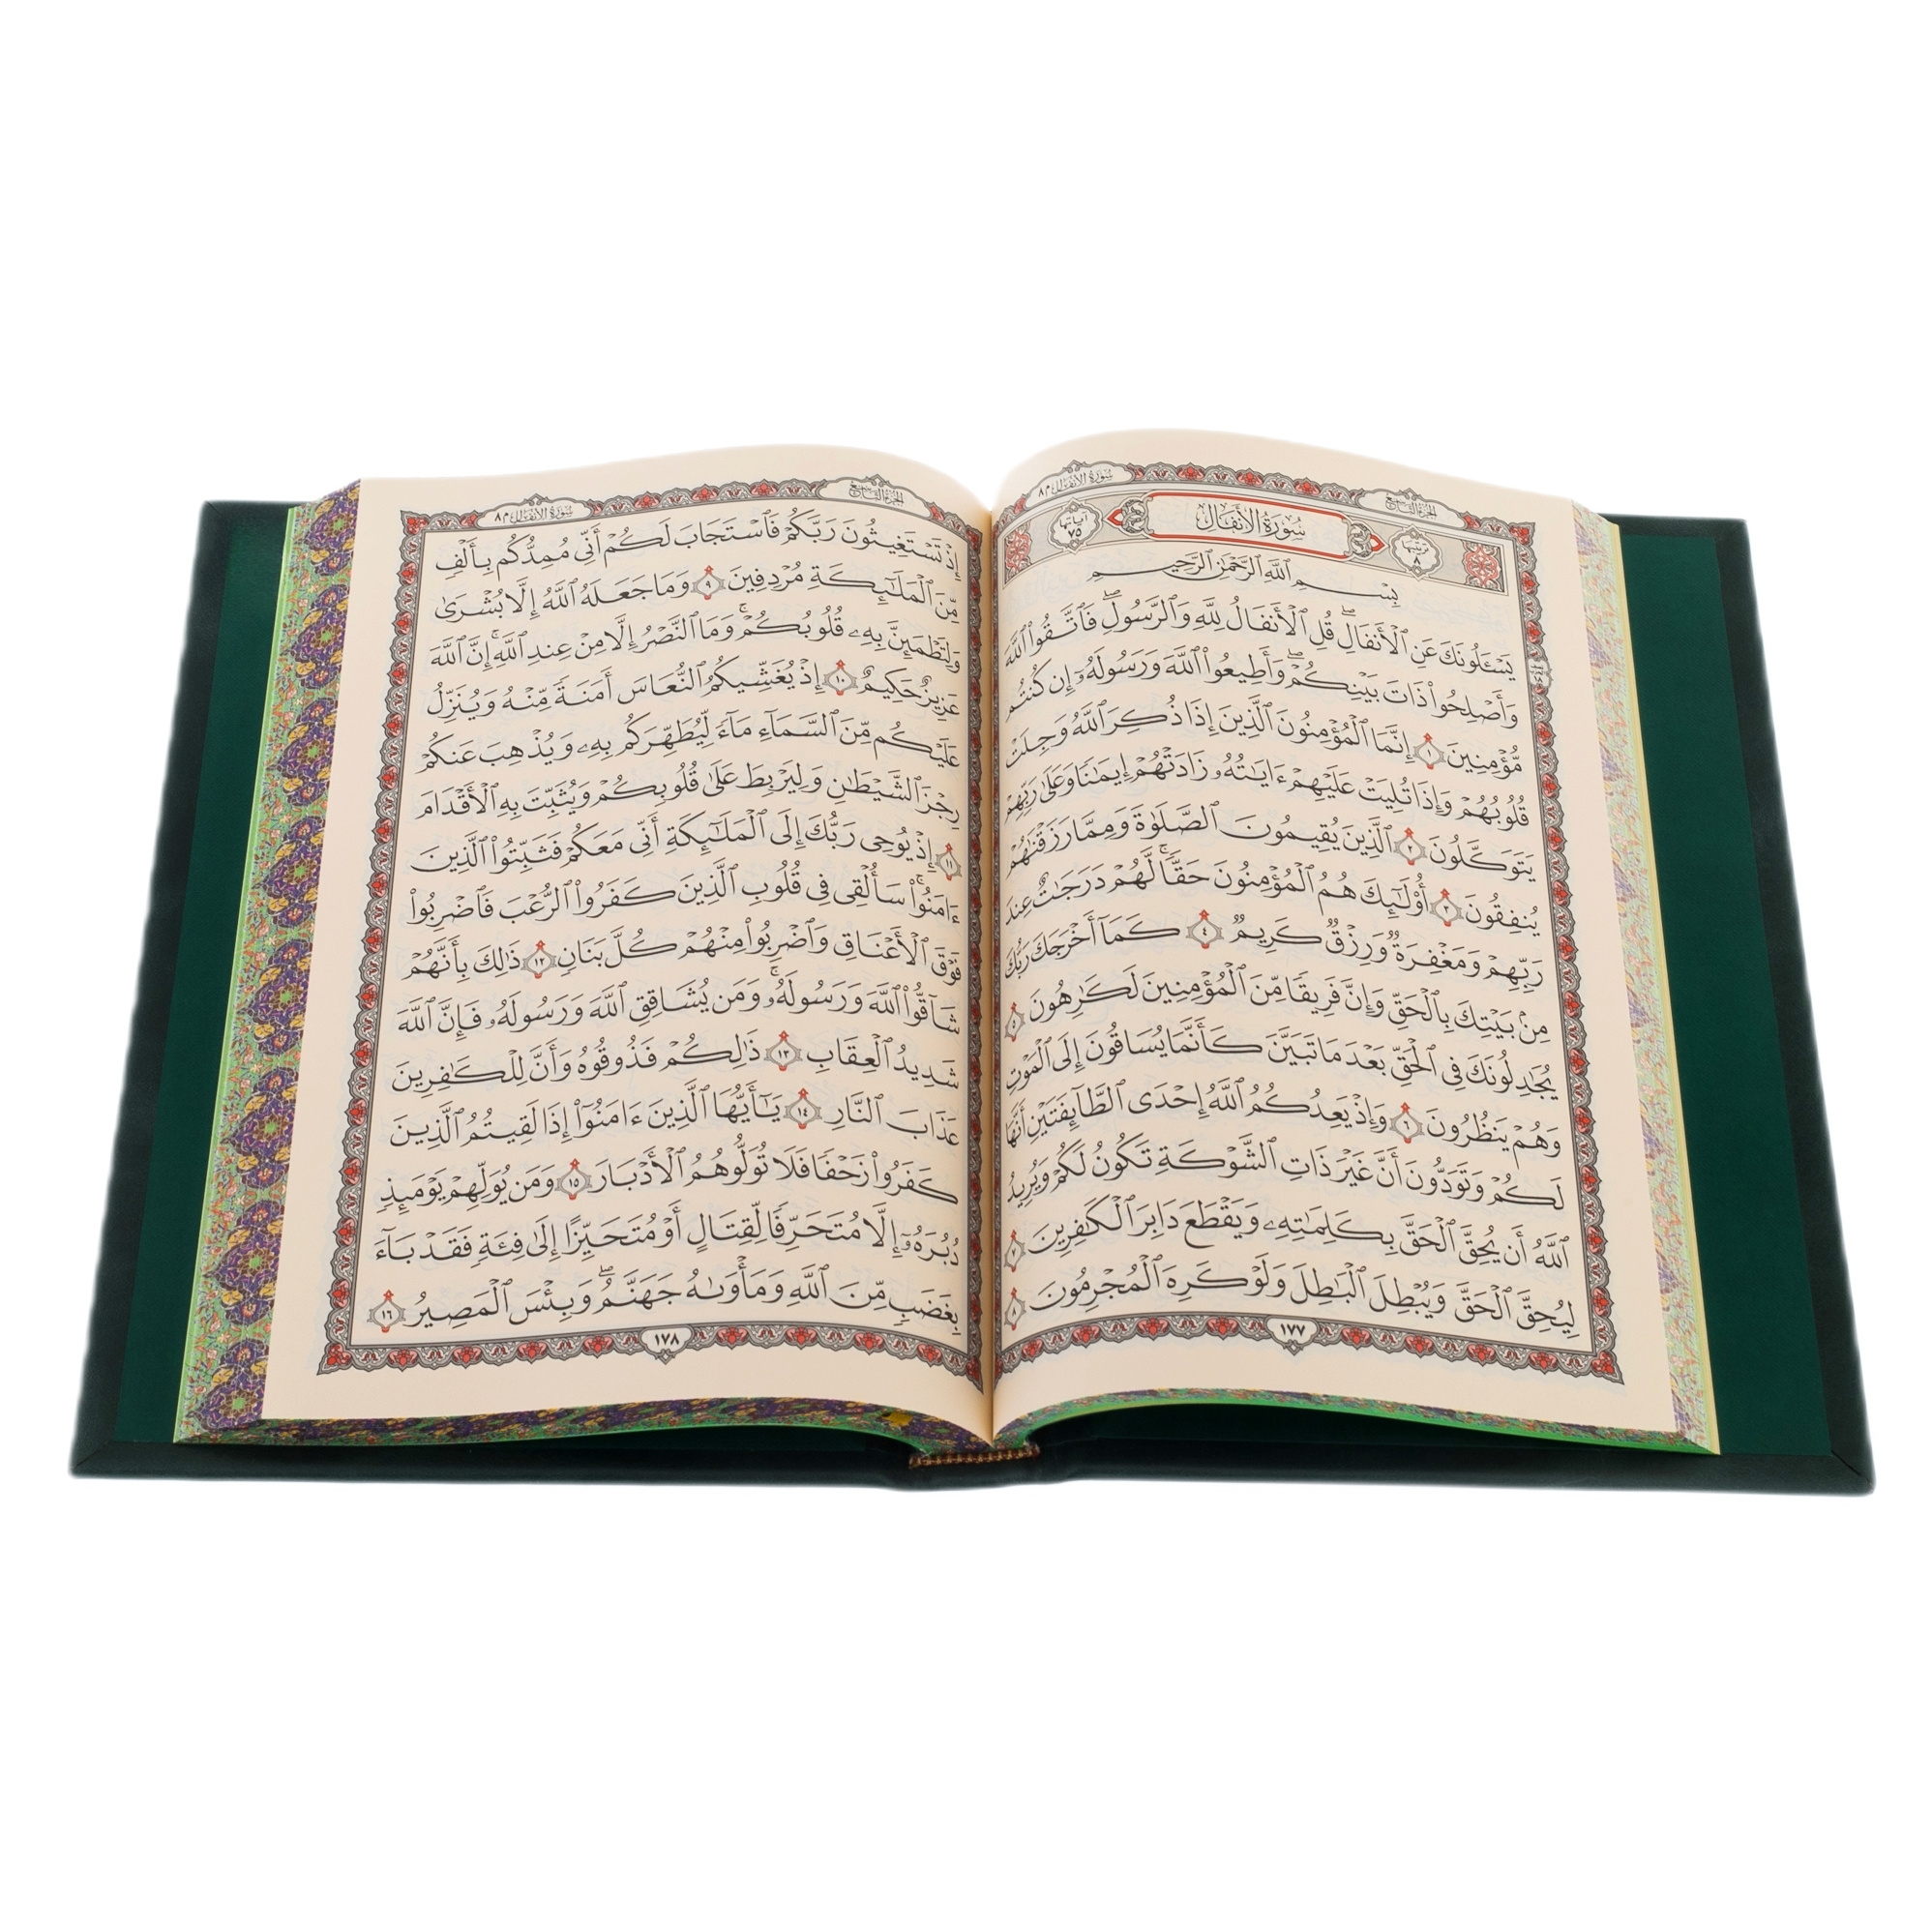 سُورَةُ الأَنفَال ٨
الجزء التاسع
ترتيبها ٨
سُورَةُ الأَنفَالِ
آياتها ٧٥
بِسْمِ ٱللَّهِ ٱلرَّحْمَٰنِ ٱلرَّحِيمِ
يَسْـَٔلُونَكَ عَنِ ٱلْأَنفَالِۖ قُلِ ٱلْأَنفَالُ لِلَّهِ وَٱلرَّسُولِۖ فَٱتَّقُوا۟ ٱللَّهَ
وَأَصْلِحُوا۟ ذَاتَ بَيْنِكُمْۖ وَأَطِيعُوا۟ ٱللَّهَ وَرَسُولَهُۥٓ إِن كُنتُم
مُّؤْمِنِينَ ١ إِنَّمَا ٱلْمُؤْمِنُونَ ٱلَّذِينَ إِذَا ذُكِرَ ٱللَّهُ وَجِلَتْ
قُلُوبُهُمْ وَإِذَا تُلِيَتْ عَلَيْهِمْ ءَايَٰتُهُۥ زَادَتْهُمْ إِيمَٰنًا وَعَلَىٰ رَبِّهِمْ
يَتَوَكَّلُونَ ٢ ٱلَّذِينَ يُقِيمُونَ ٱلصَّلَوٰةَ وَمِمَّا رَزَقْنَٰهُمْ
يُنفِقُونَ ٣ أُو۟لَٰٓئِكَ هُمُ ٱلْمُؤْمِنُونَ حَقًّاۚ لَّهُمْ دَرَجَٰتٌ عِندَ
رَبِّهِمْ وَمَغْفِرَةٌ وَرِزْقٌ كَرِيمٌ ٤ كَمَآ أَخْرَجَكَ رَبُّكَ
مِنۢ بَيْتِكَ بِٱلْحَقِّ وَإِنَّ فَرِيقًا مِّنَ ٱلْمُؤْمِنِينَ لَكَٰرِهُونَ ٥
يُجَٰدِلُونَكَ فِى ٱلْحَقِّ بَعْدَ مَا تَبَيَّنَ كَأَنَّمَا يُسَاقُونَ إِلَى ٱلْمَوْتِ
وَهُمْ يَنظُرُونَ ٦ وَإِذْ يَعِدُكُمُ ٱللَّهُ إِحْدَى ٱلطَّآئِفَتَيْنِ أَنَّهَا
لَكُمْ وَتَوَدُّونَ أَنَّ غَيْرَ ذَاتِ ٱلشَّوْكَةِ تَكُونُ لَكُمْ وَيُرِيدُ
ٱللَّهُ أَن يُحِقَّ ٱلْحَقَّ بِكَلِمَٰتِهِۦ وَيَقْطَعَ دَابِرَ ٱلْكَٰفِرِينَ ٧
لِيُحِقَّ ٱلْحَقَّ وَيُبْطِلَ ٱلْبَٰطِلَ وَلَوْ كَرِهَ ٱلْمُجْرِمُونَ ٨
١٧٧
الجزء التاسع
سُورَةُ الأَنفَال ٨
إِذْ تَسْتَغِيثُونَ رَبَّكُمْ فَٱسْتَجَابَ لَكُمْ أَنِّى مُمِدُّكُم بِأَلْفٍ
مِّنَ ٱلْمَلَٰٓئِكَةِ مُرْدِفِينَ ٩ وَمَا جَعَلَهُ ٱللَّهُ إِلَّا بُشْرَىٰ
وَلِتَطْمَئِنَّ بِهِۦ قُلُوبُكُمْۚ وَمَا ٱلنَّصْرُ إِلَّا مِنْ عِندِ ٱللَّهِۚ إِنَّ ٱللَّهَ
عَزِيزٌ حَكِيمٌ ١٠ إِذْ يُغَشِّيكُمُ ٱلنُّعَاسَ أَمَنَةً مِّنْهُ وَيُنَزِّلُ
عَلَيْكُم مِّنَ ٱلسَّمَآءِ مَآءً لِّيُطَهِّرَكُم بِهِۦ وَيُذْهِبَ عَنكُمْ
رِجْزَ ٱلشَّيْطَٰنِ وَلِيَرْبِطَ عَلَىٰ قُلُوبِكُمْ وَيُثَبِّتَ بِهِ ٱلْأَقْدَامَ
١١ إِذْ يُوحِى رَبُّكَ إِلَى ٱلْمَلَٰٓئِكَةِ أَنِّى مَعَكُمْ فَثَبِّتُوا۟ ٱلَّذِينَ
ءَامَنُوا۟ۚ سَأُلْقِى فِى قُلُوبِ ٱلَّذِينَ كَفَرُوا۟ ٱلرُّعْبَ فَٱضْرِبُوا۟
فَوْقَ ٱلْأَعْنَاقِ وَٱضْرِبُوا۟ مِنْهُمْ كُلَّ بَنَانٍ ١٢ ذَٰلِكَ بِأَنَّهُمْ
شَآقُّوا۟ ٱللَّهَ وَرَسُولَهُۥۚ وَمَن يُشَاقِقِ ٱللَّهَ وَرَسُولَهُۥ فَإِنَّ ٱللَّهَ
شَدِيدُ ٱلْعِقَابِ ١٣ ذَٰلِكُمْ فَذُوقُوهُ وَأَنَّ لِلْكَٰفِرِينَ
عَذَابَ ٱلنَّارِ ١٤ يَٰٓأَيُّهَا ٱلَّذِينَ ءَامَنُوٓا۟ إِذَا لَقِيتُمُ ٱلَّذِينَ
كَفَرُوا۟ زَحْفًا فَلَا تُوَلُّوهُمُ ٱلْأَدْبَارَ ١٥ وَمَن يُوَلِّهِمْ يَوْمَئِذٍ
دُبُرَهُۥٓ إِلَّا مُتَحَرِّفًا لِّقِتَالٍ أَوْ مُتَحَيِّزًا إِلَىٰ فِئَةٍ فَقَدْ بَآءَ
بِغَضَبٍ مِّنَ ٱللَّهِ وَمَأْوَىٰهُ جَهَنَّمُۖ وَبِئْسَ ٱلْمَصِيرُ ١٦
١٧٨